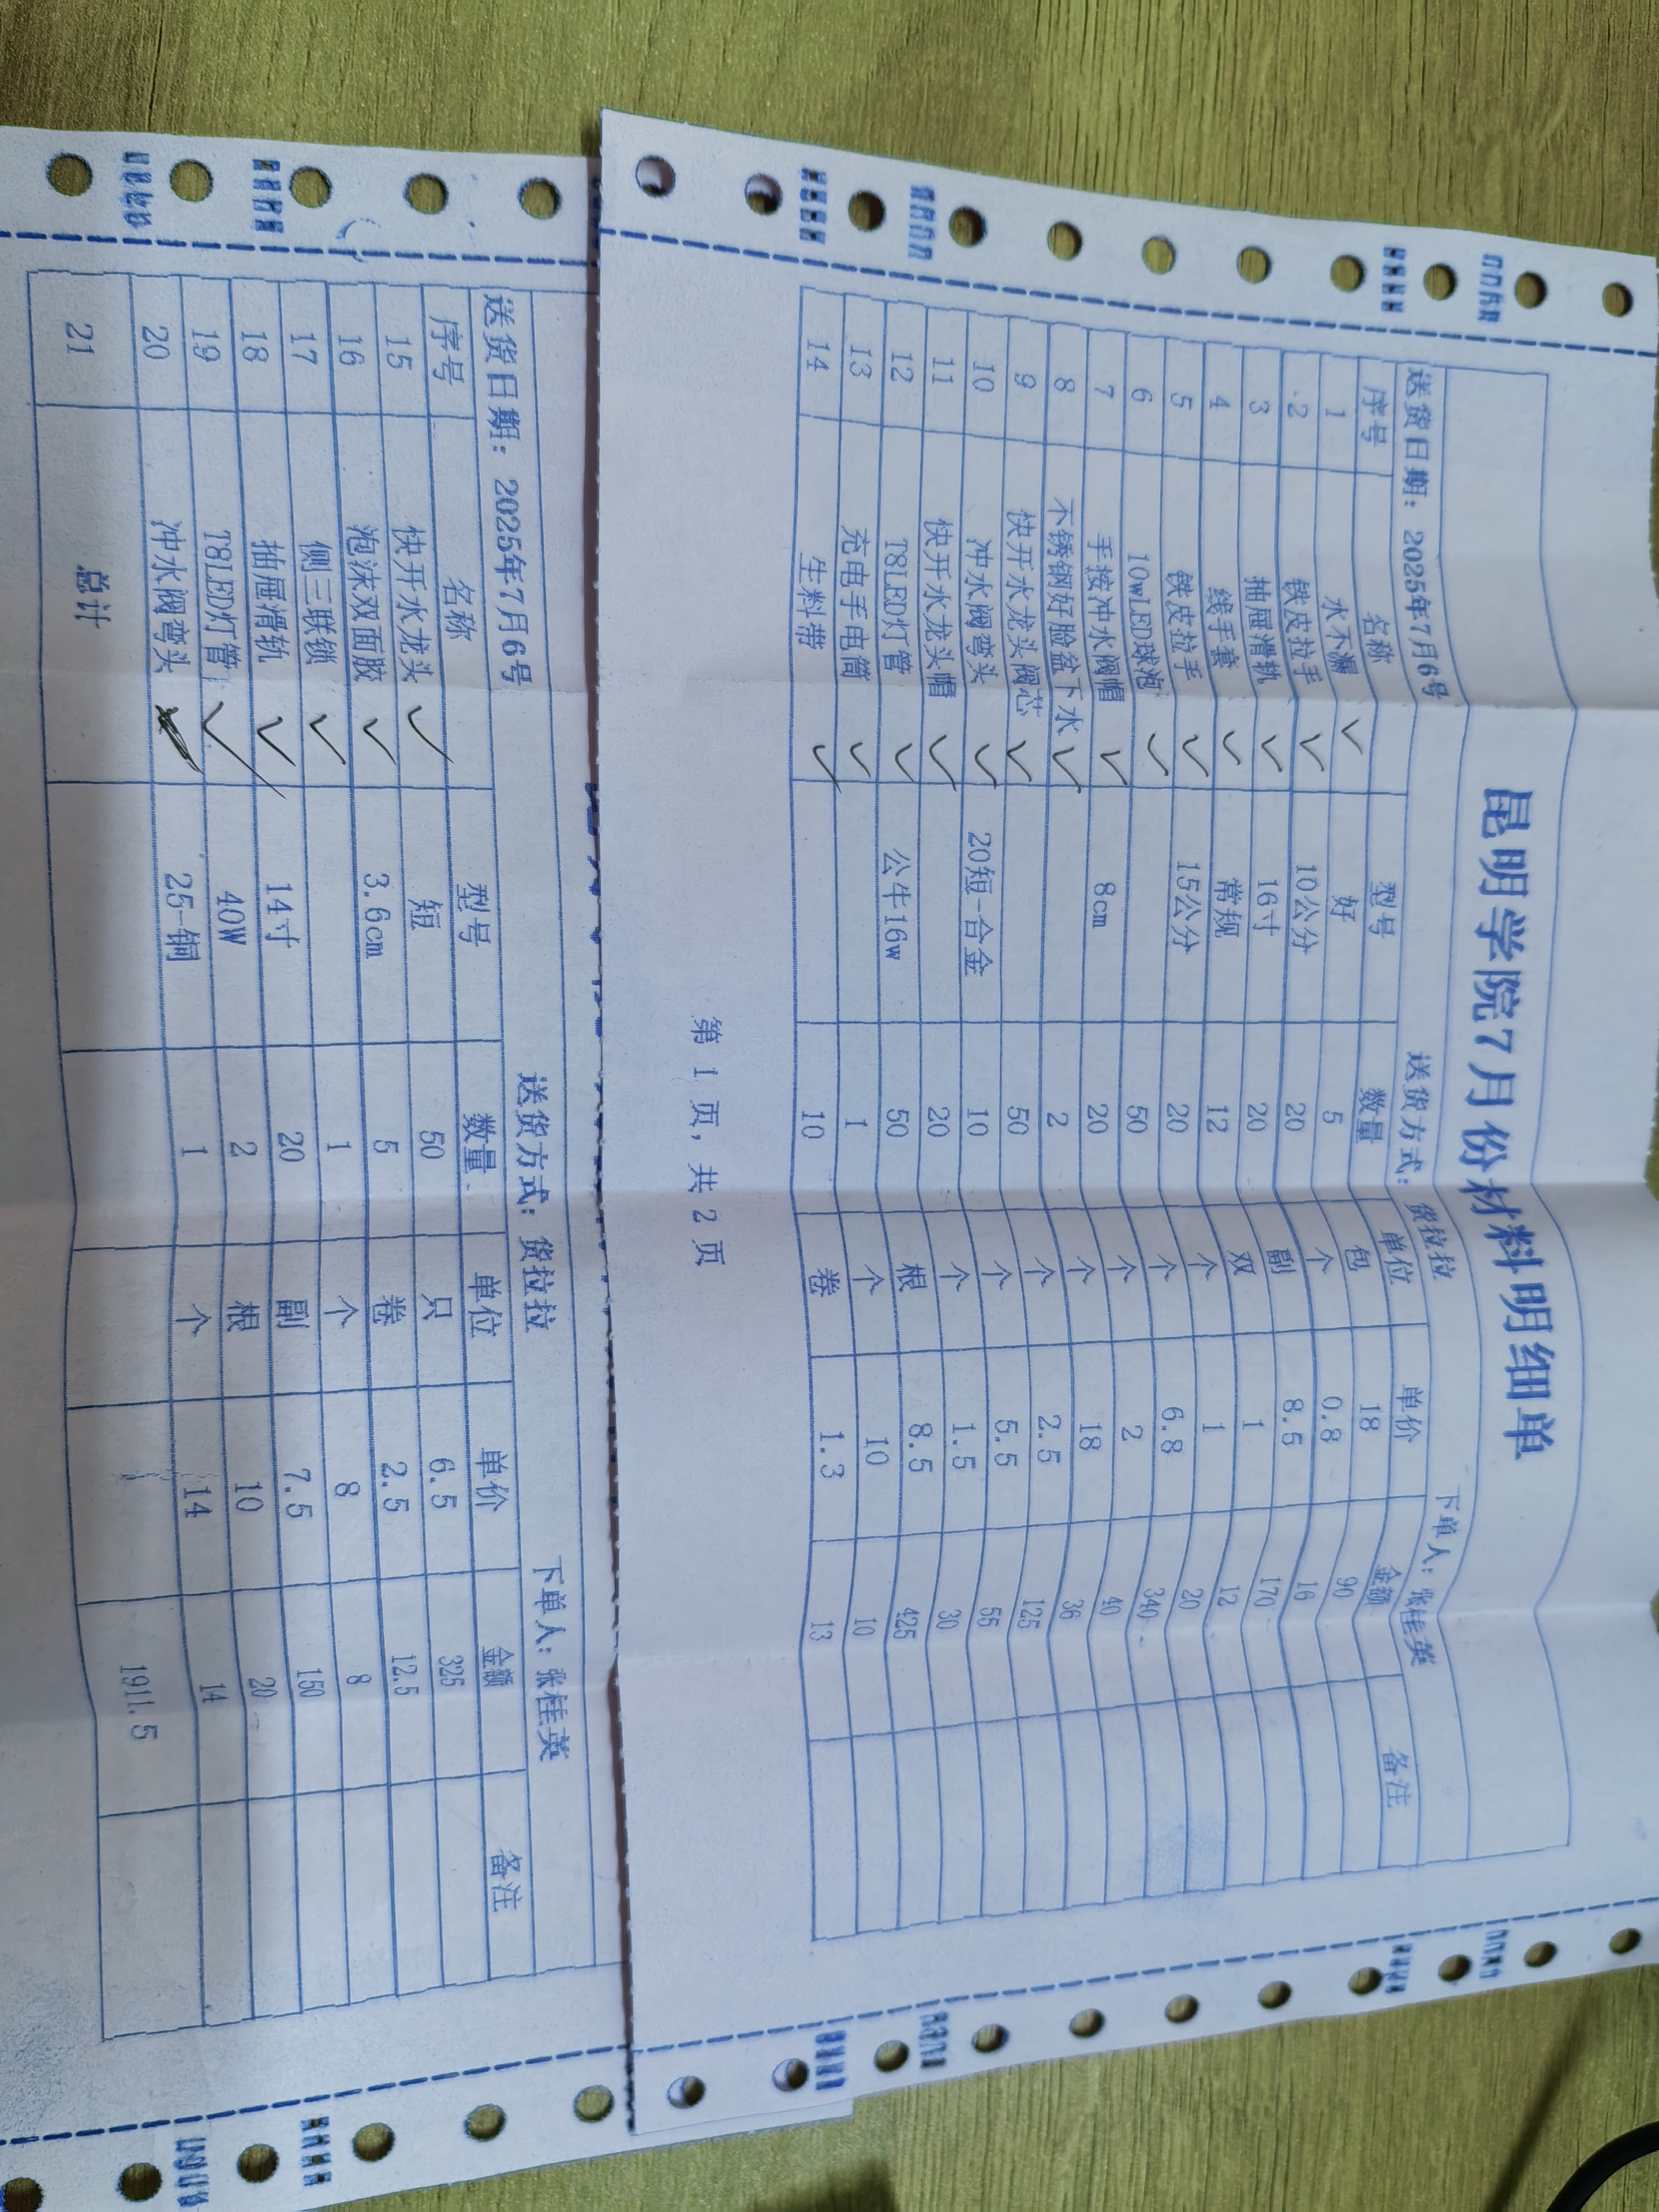 昆明学院7月份材料明细单
送货日期：2025年7月6号 送货方式：货拉拉 下单人：张桂英
序号 名称 型号 数量 单位 单价 金额 备注
1 水不漏 好 5 包 18 90
2 铁皮拉手 10公分 20 个 0.8 16
3 抽屉滑轨 16寸 20 副 8.5 170
4 线手套 常规 12 双 1 12
5 铁皮拉手 15公分 20 个 1 20
6 10wLED球泡 50 个 6.8 340
7 手按冲水阀帽 8cm 20 个 2 40
8 不锈钢好脸盆下水 2 个 18 36
9 快开水龙头阀芯 50 个 2.5 125
10 冲水阀弯头 20短-合金 10 个 5.5 55
11 快开水龙头帽 20 个 1.5 30
12 T8LED灯管 公牛16w 50 根 8.5 425
13 充电手电筒 1 个 10 10
14 生料带 10 卷 1.3 13
第 1 页，共 2 页
送货日期：2025年7月6号 送货方式：货拉拉 下单人：张桂英
序号 名称 型号 数量 单位 单价 金额 备注
15 快开水龙头 短 50 只 6.5 325
16 泡沫双面胶 3.6cm 5 卷 2.5 12.5
17 侧三联锁 1 个 8 8
18 抽屉滑轨 14寸 20 副 7.5 150
19 T8LED灯管 40W 2 根 10 20
20 冲水阀弯头 25-铜 1 个 14 14
21 总计 1911.5